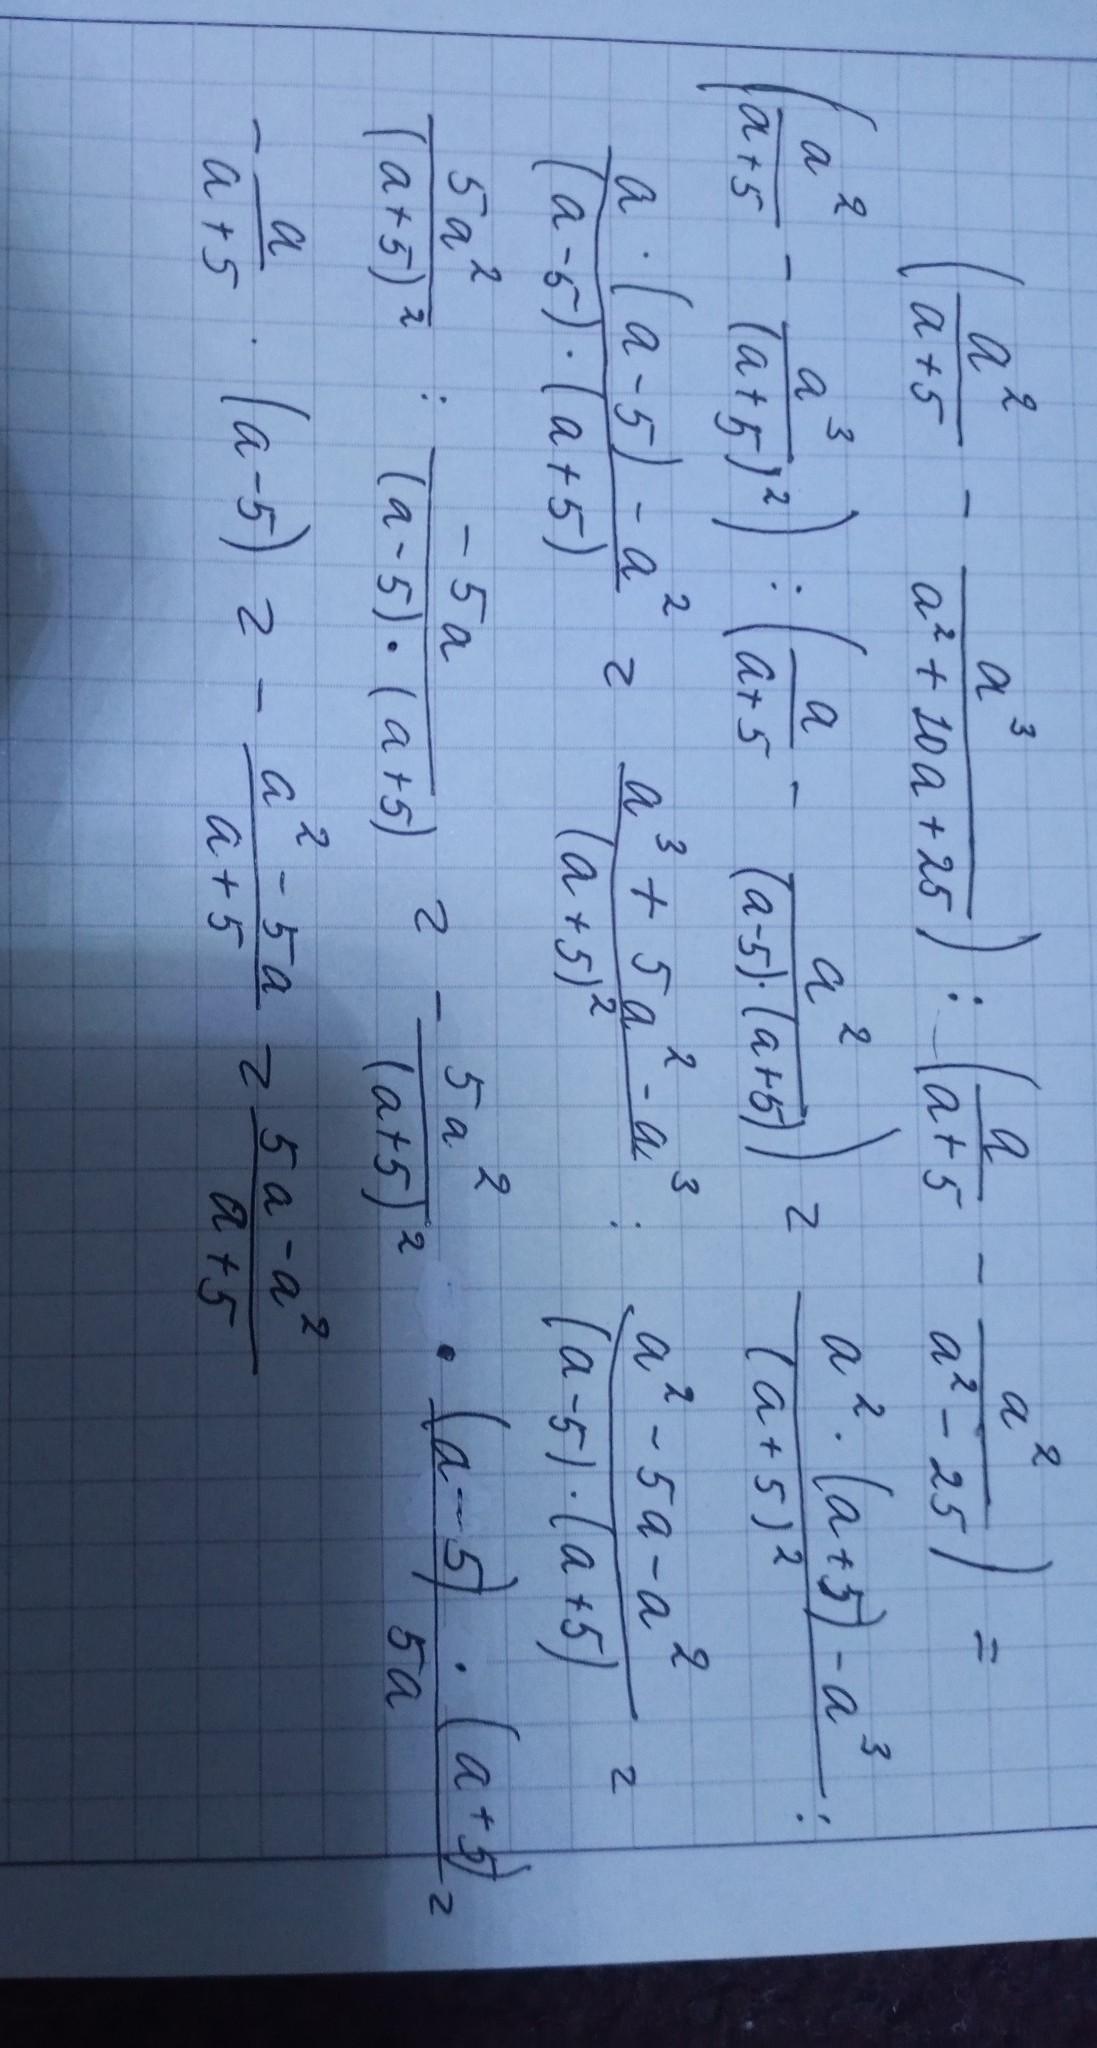 (a²/(a+5) - a³/(a²+10a+25)) : (a/(a+5) - a²/(a²-25)) =
(a²/(a+5) - a³/(a+5)²) : (a/(a+5) - a²/((a-5)·(a+5))) = (a²·(a+5)-a³)/(a+5)² :
(a·(a-5)-a²)/((a-5)·(a+5)) = (a³+5a²-a³)/(a+5)² : (a²-5a-a²)/((a-5)·(a+5)) =
5a²/(a+5)² : -5a/((a-5)·(a+5)) = - 5a²/(a+5)² · ((a-5)·(a+5))/5a =
- a/(a+5) · (a-5) = - (a²-5a)/(a+5) = (5a-a²)/(a+5)